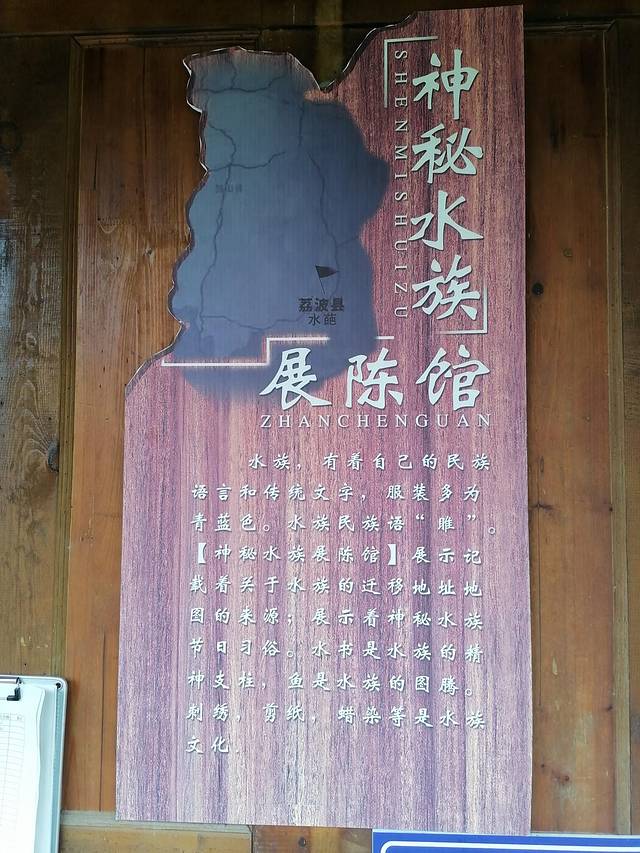 神秘水族
SHENMISHUIZU
荔波县
水葩
展陈馆
ZHANCHENGUAN
水族，有着自己的民族
语言和传统文字，服装多为
青蓝色。水族民族语“睢”。
【神秘水族展陈馆】展示记
载着关于水族的迁移地址地
图的来源；展示着神秘水族
节日习俗。水书是水族的精
神支柱，鱼是水族的图腾。
刺绣，剪纸，蜡染等是水族
文化.